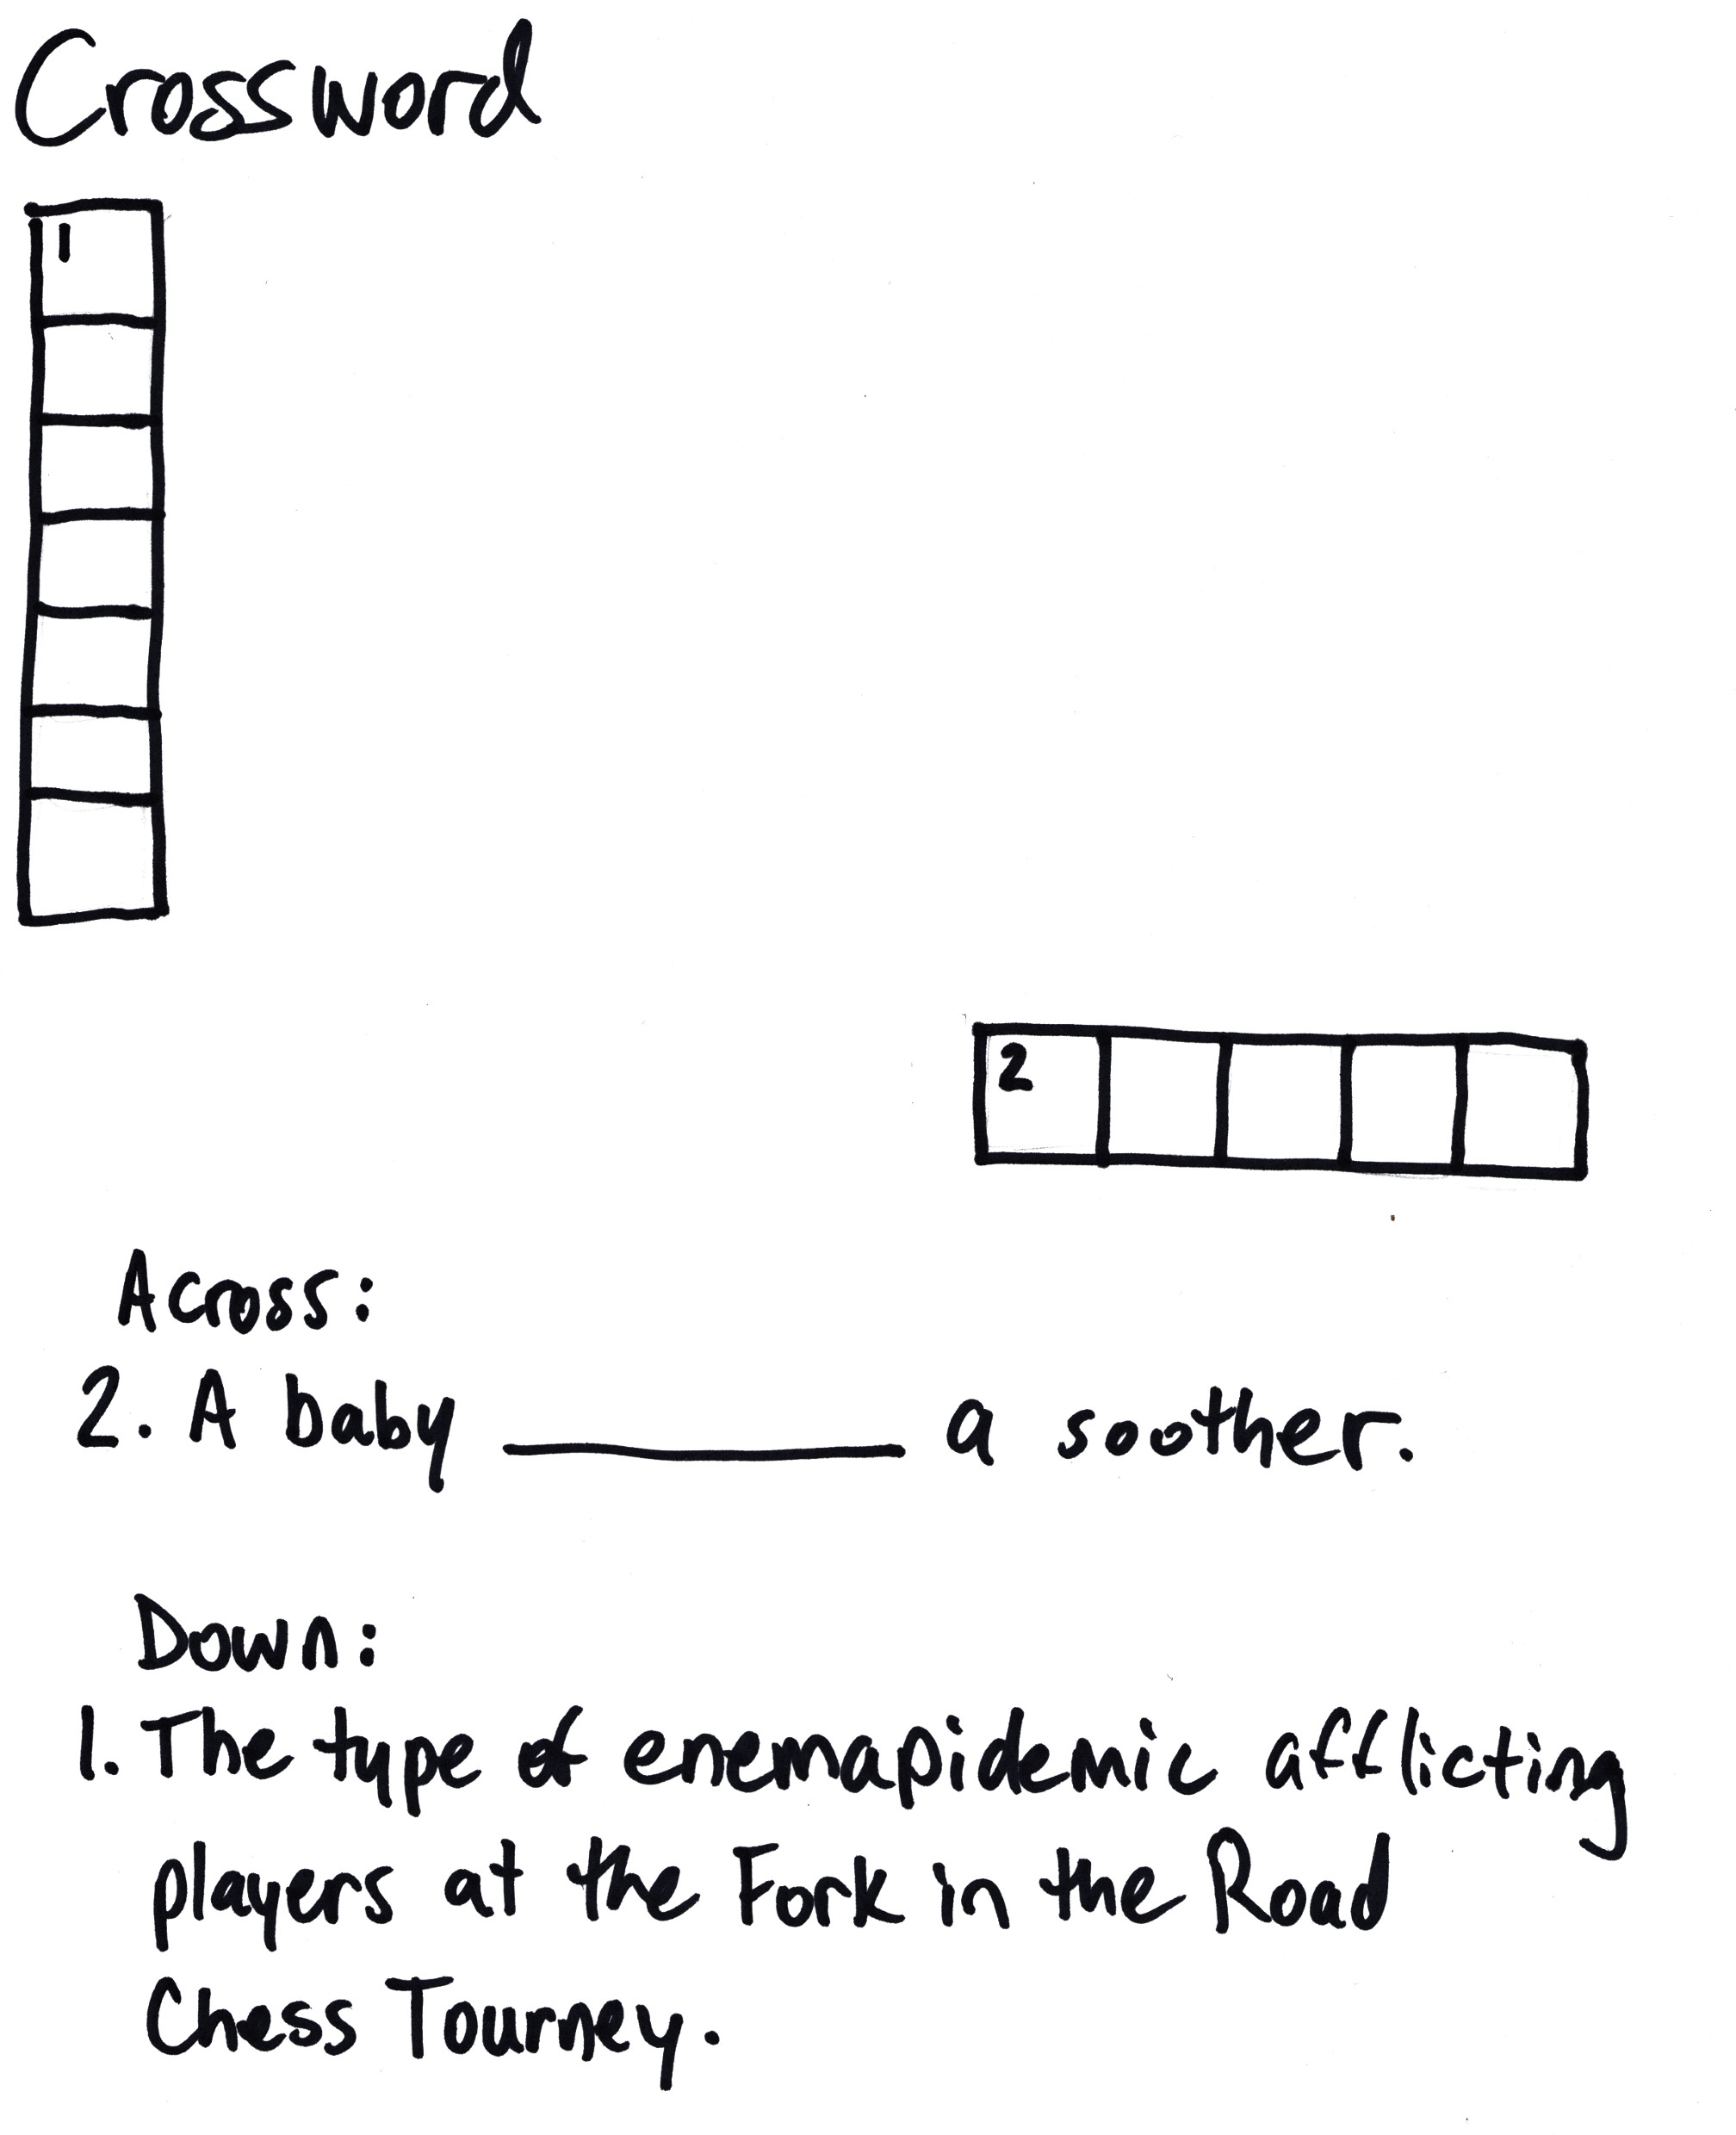 Crossword
1
2
Across:
2. A baby __________ a soother.
Down:
1. The type of enemapidemic afflicting
players at the Fork in the Road
Chess Tourney.